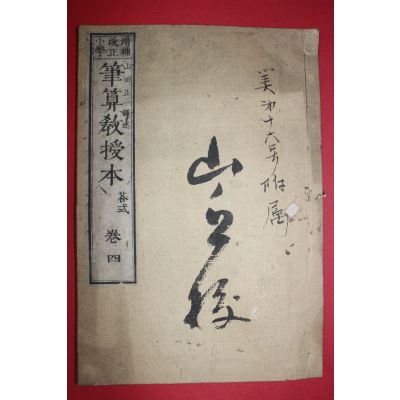 美第十六号附属
山口校
増補
改正
小學
山田正一編述
筆算教授本
答式
巻四